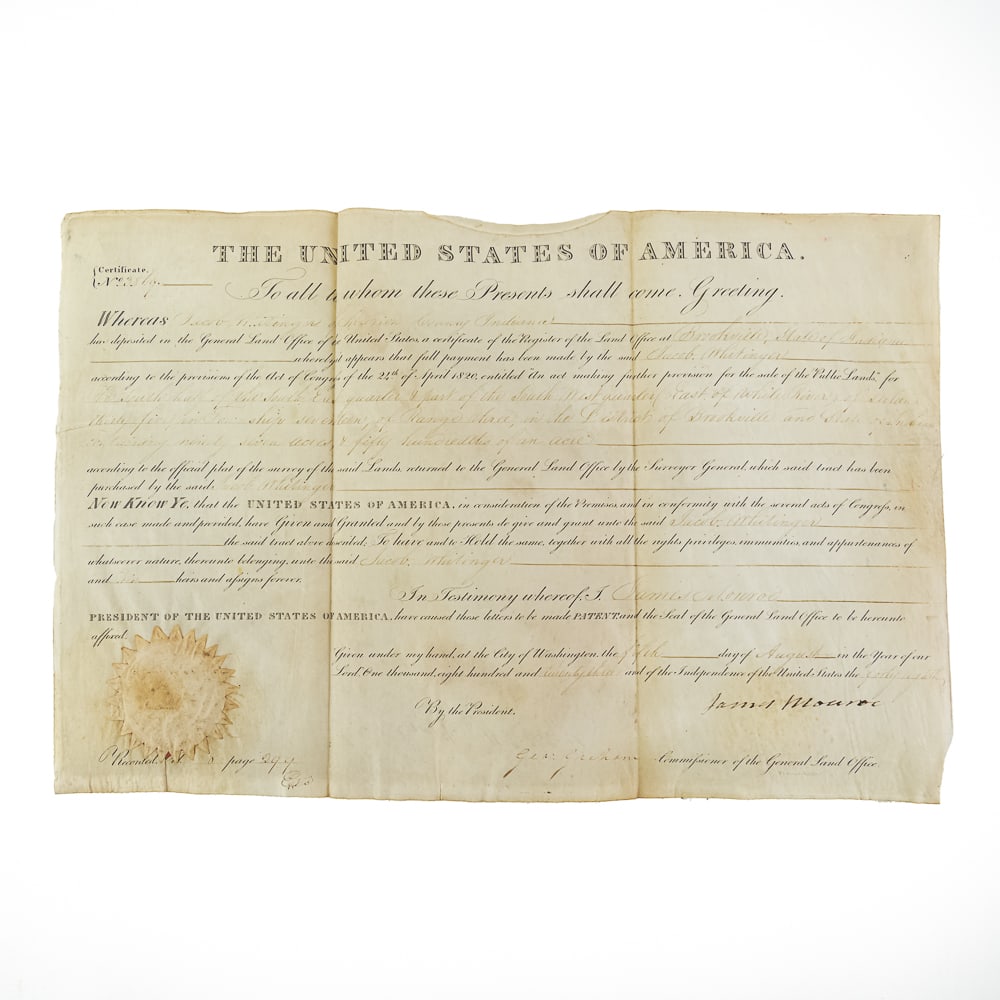 THE UNITED STATES OF AMERICA.
Certificate.
No.
To all to whom these Presents shall come, Greeting.
Whereas Jacob Whitinger of Marion County Indiana
has deposited in the General Land Office of the United States, a certificate of the Register of the Land Office at Brookville, State of Indiana
whereby it appears that full payment has been made by the said Jacob Whitinger
according to the provisions of the Act of Congress of the 24th of April 1820, entitled "An act making further provision for the sale of the Public Lands," for
the South half of the South East quarter & part of the South West quarter East of White River, of Section
thirty five, in Township seventeen, of Range three, in the District of Brookville and State of Indiana
containing ninety seven acres, & fifty hundredths of an acre
according to the official plat of the survey of the said Lands, returned to the General Land Office by the Surveyor General, which said tract has been
purchased by the said Jacob Whitinger
Now Know Ye, that the UNITED STATES OF AMERICA, in consideration of the Premises, and in conformity with the several acts of Congress, in
such case made and provided, have Given and Granted and by these presents do give and grant unto the said Jacob Whitinger
the said tract above described; To have and to Hold the same, together with all the rights, privileges, immunities, and appurtenances of
whatsoever nature, thereunto belonging, unto the said Jacob Whitinger
and his heirs and assigns forever.
In Testimony whereof, I, James Monroe
PRESIDENT OF THE UNITED STATES OF AMERICA, have caused these letters to be made PATENT, and the Seal of the General Land Office to be hereunto
affixed.
Given under my hand, at the City of Washington, the fifth day of August in the Year of our
Lord, One thousand, eight hundred and twenty three and of the Independence of the United States the forty eighth
James Monroe
By the President.
Geo: Graham Commissioner of the General Land Office.
Recorded, page